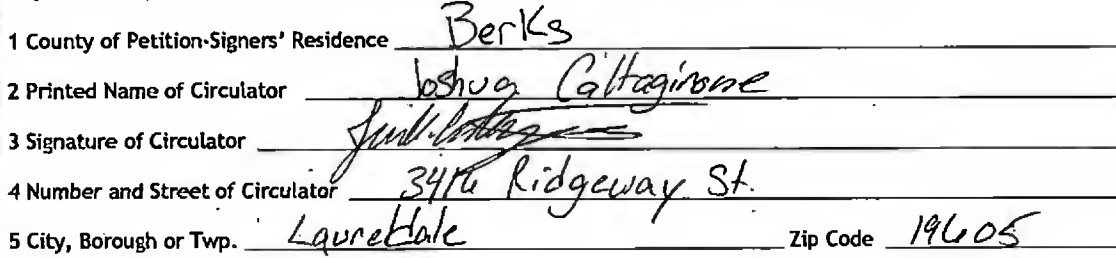 1 County of Petition-Signers' Residence Berks
2 Printed Name of Circulator Joshua Caltagirone
3 Signature of Circulator
4 Number and Street of Circulator Ridgeway St.
5 City, Borough or Twp. Laureldale Zip Code 19605